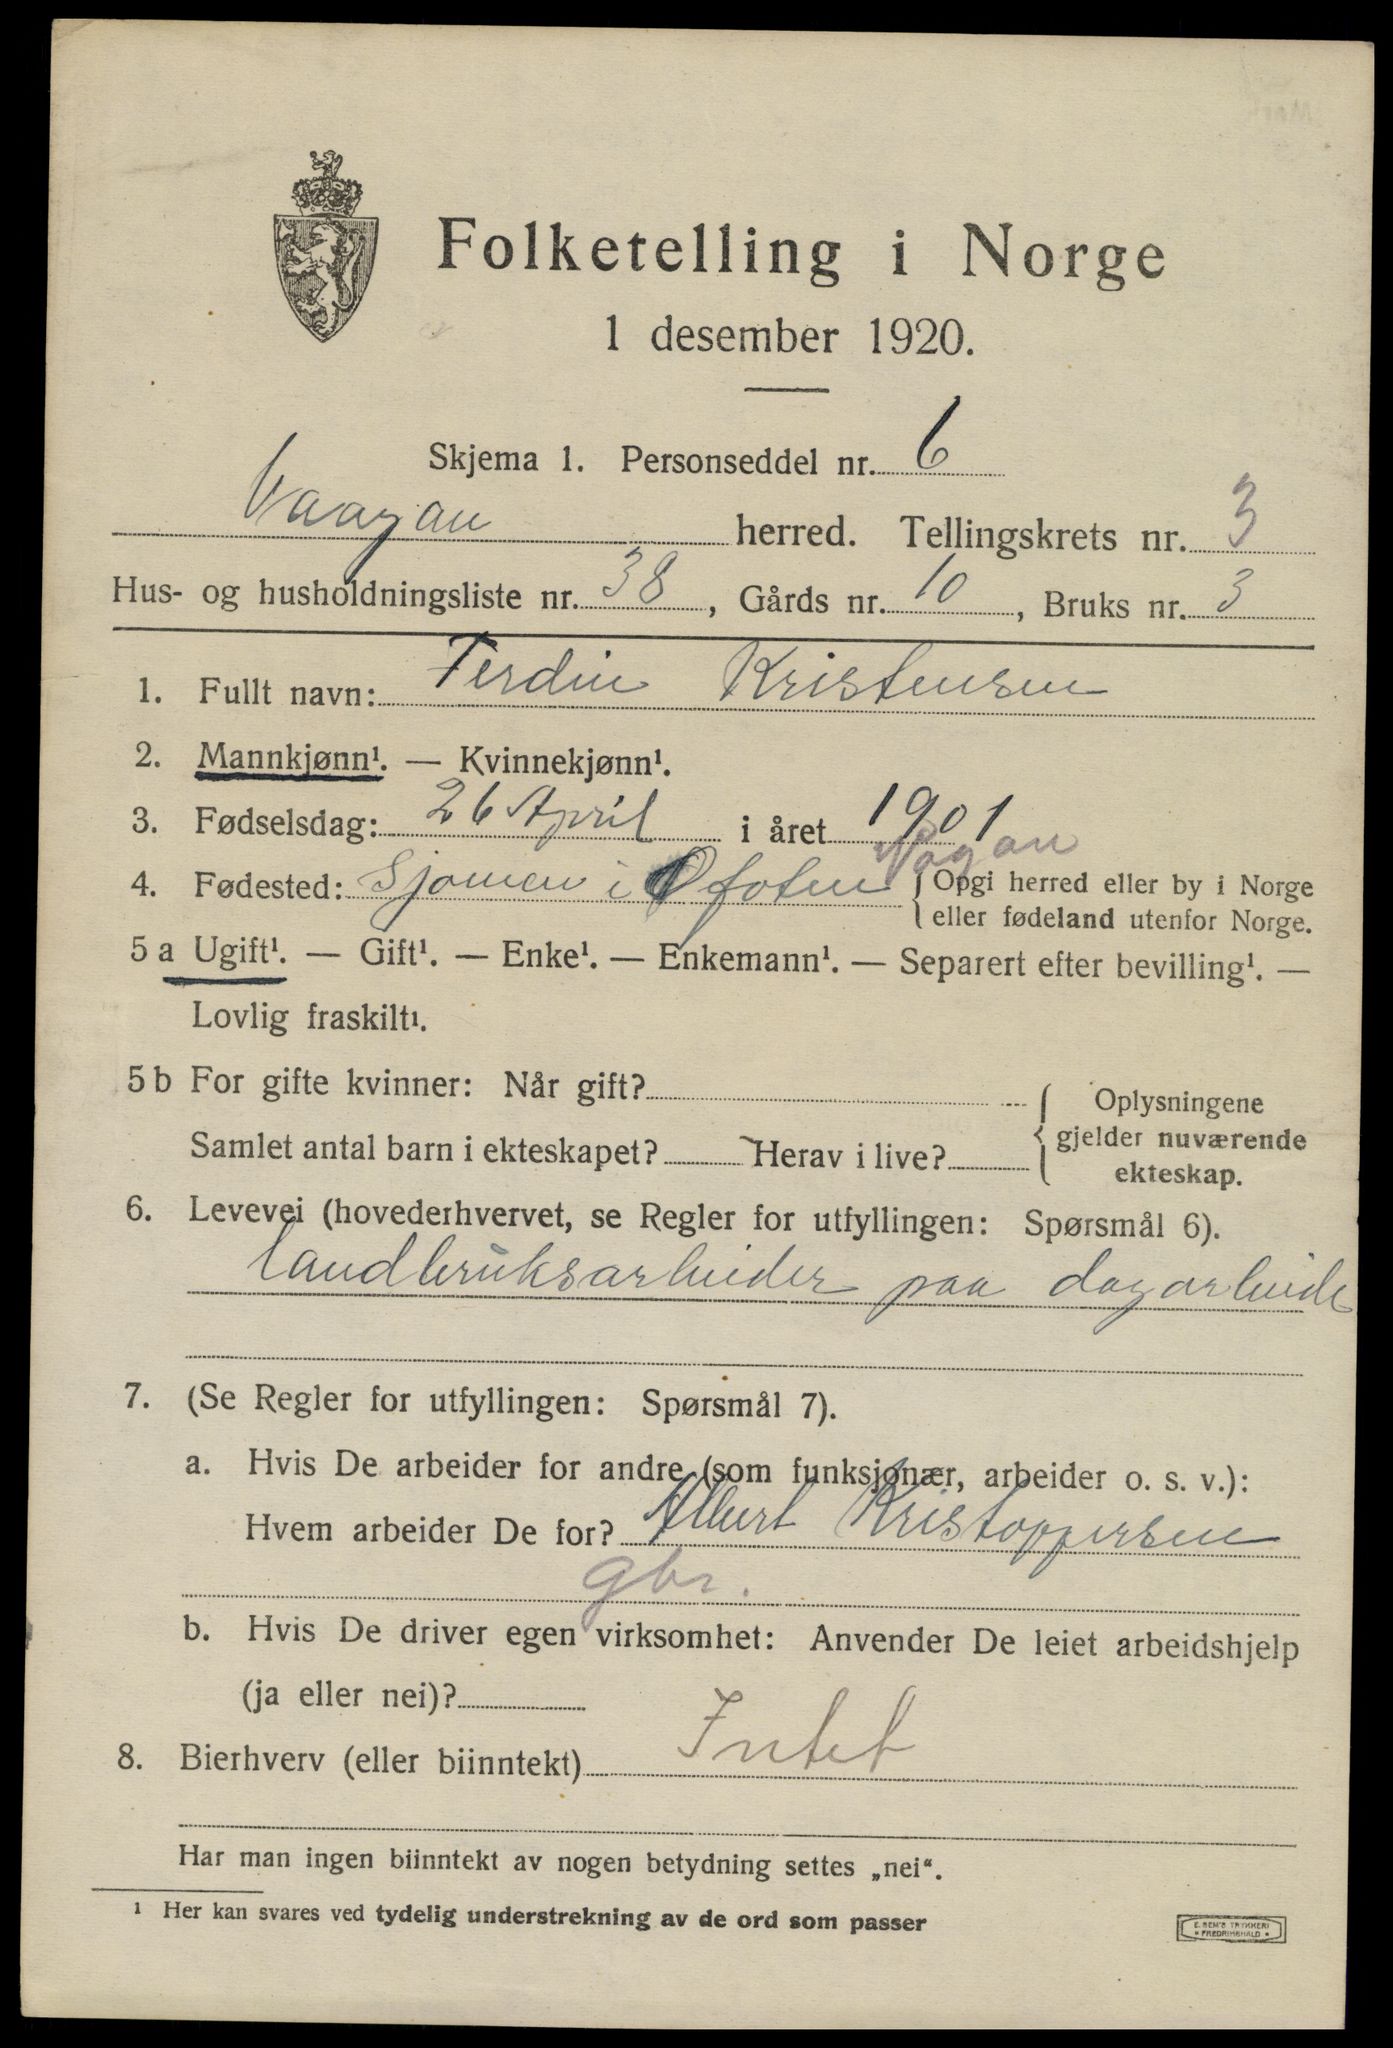 Folketelling i Norge
1 desember 1920.
Skjema 1. Personseddel nr. 6
Vaagan herred. Tellingskrets nr. 3
Hus- og husholdningsliste nr. 38, Gårds nr. 10, Bruks nr. 3
1. Fullt navn: Ferdin Kristensen
2. Mannkjønn¹. — Kvinnekjønn¹.
3. Fødselsdag: 26 April i året 1901
Vågan
4. Fødested: Sjomen i Ofoten { Opgi herred eller by i Norge
eller fødeland utenfor Norge.
5 a Ugift¹. — Gift¹. — Enke¹. — Enkemann¹. — Separert efter bevilling¹. —
Lovlig fraskilt¹.
5 b For gifte kvinner: Når gift? { Oplysningene
gjelder nuværende
ekteskap.
Samlet antal barn i ekteskapet? Herav i live?
6. Levevei (hovederhvervet, se Regler for utfyllingen: Spørsmål 6).
landbruksarbeider paa dagarbeide
7. (Se Regler for utfyllingen: Spørsmål 7).
a. Hvis De arbeider for andre (som funksjonær, arbeider o. s. v.):
Hvem arbeider De for? Albert Kristoppersen
gbr.
b. Hvis De driver egen virksomhet: Anvender De leiet arbeidshjelp
(ja eller nei)?
8. Bierhverv (eller biinntekt) Intet
Har man ingen biinntekt av nogen betydning settes „nei“.
¹ Her kan svares ved tydelig understrekning av de ord som passer
E. SEM'S TRYKKERI
* FREDRIKSHALD *